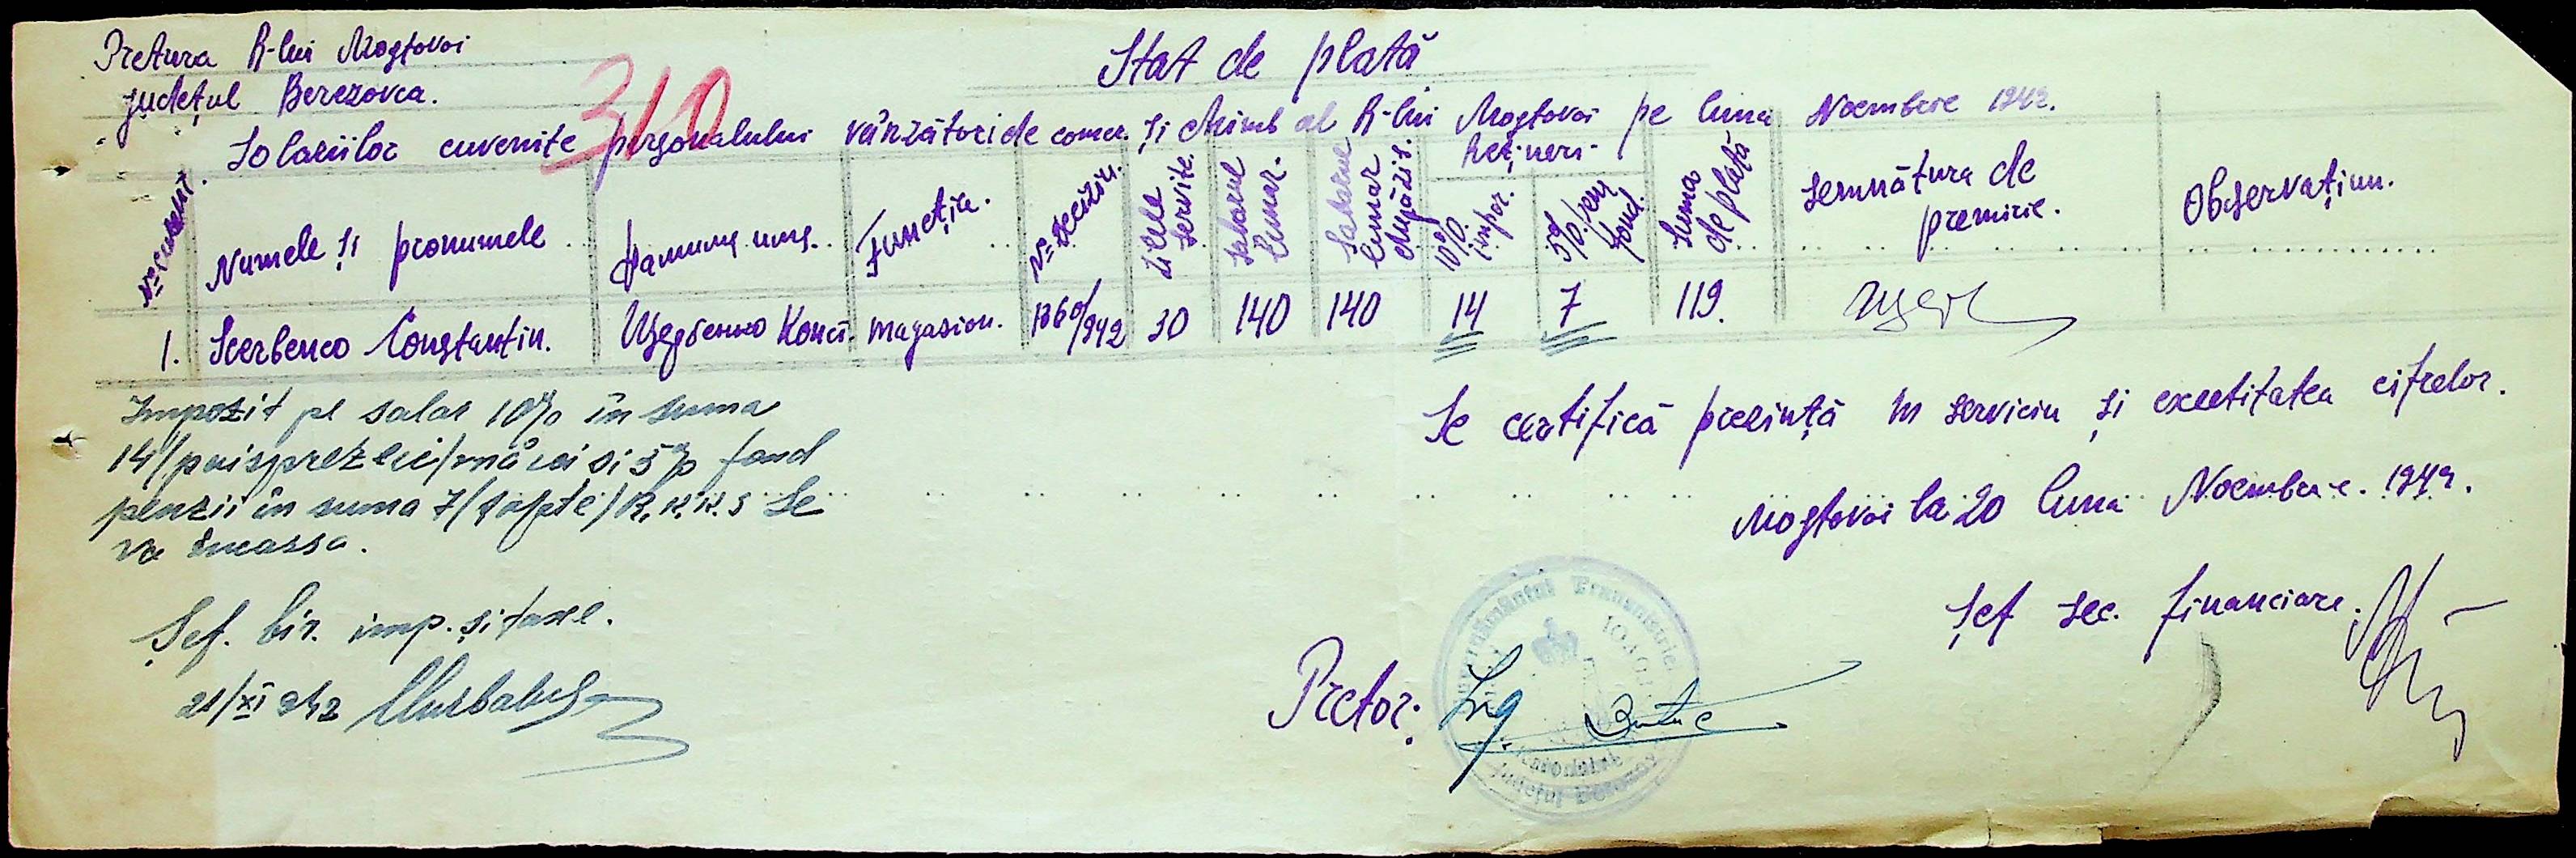 Pretura R-lui Mostovoi
Județul Berezovca.
310
Stat de plată
Solariilor cuvenite personalului vânzători de comer. și chimb al R-lui Mostovoi pe luna Noembrie 1942.
Nº curent.
Numele și pronumele
Функția.
Nº deciziei.
Zilele servite.
Salarul lunar.
Salarul lunar
Rețineri
10% impoz.
5% fond.
Suma de plată
Semnătura de premirie.
Observațiun.
1. Scerbenco Constantin. Щербенко Конст. magazion. 1360/942 30 140 140 14 7 119.
Impozit pe salar 10% în suma
14/paisprezeci/mărci si 5% fond
penzii în suma 7/șapte/R.K.K.S se
va încassa.
Șef. bir. imp. și taxe.
21/XI 942
Se certifică prezință în serviciu și exectitatea cifrelor.
Mostovoi la 20 luna Noembrie. 1942.
Șef sec. financiare.
Pretor: Ing
Guvernământul Transnistriei
Județul Berezovca